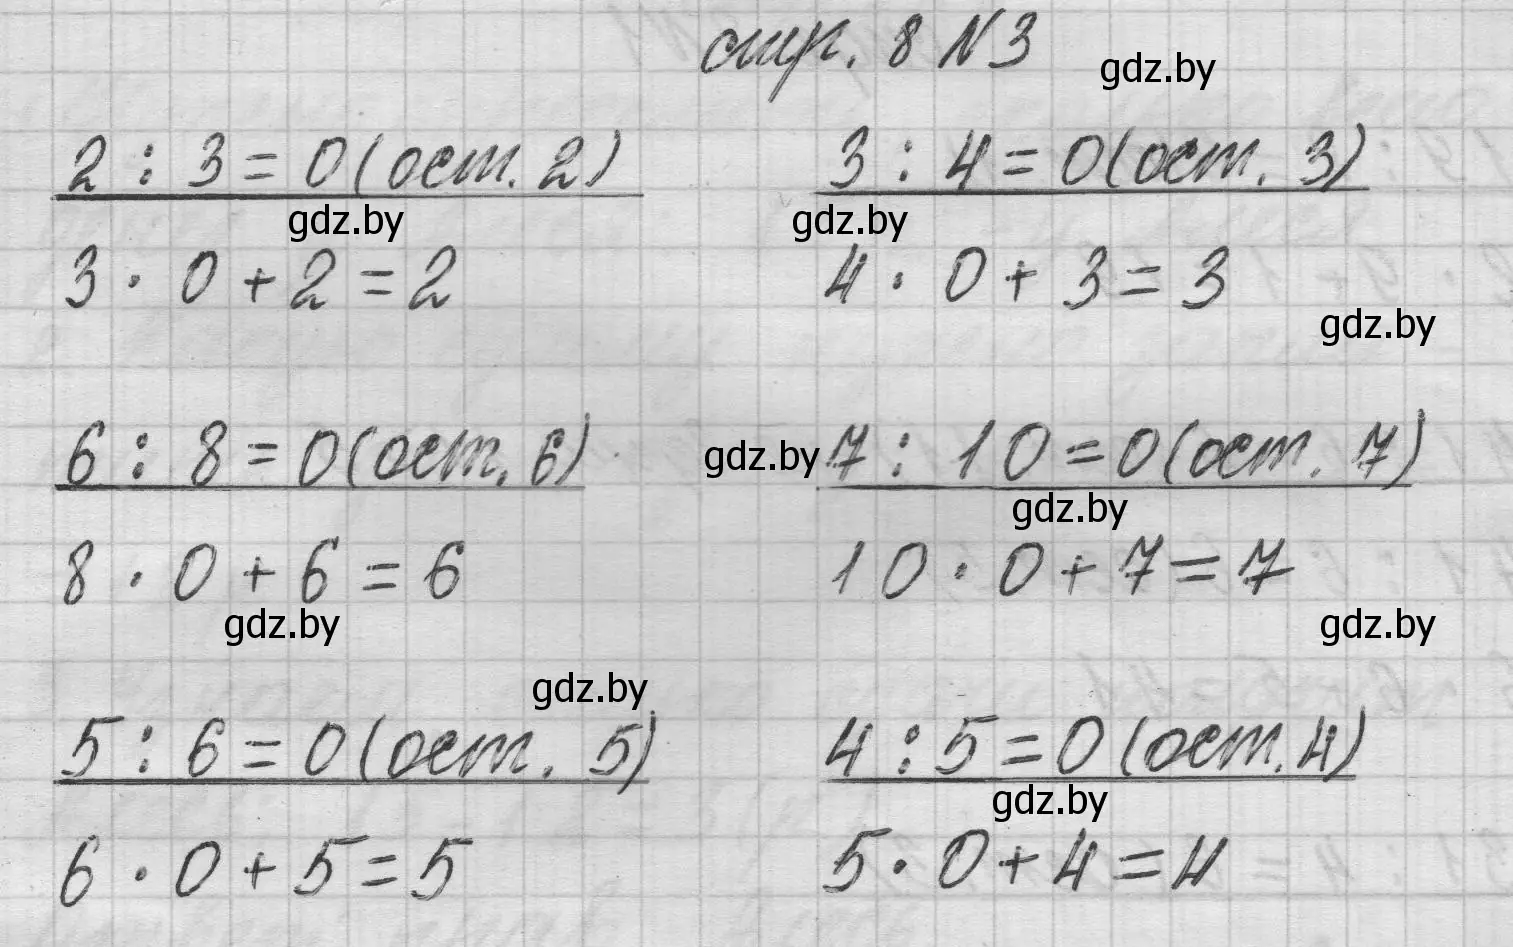 стр. 8 №3
gdz.by
2 : 3 = 0 (ост. 2)
3 : 4 = 0 (ост. 3)
gdz.by
gdz.by
3 · 0 + 2 = 2
4 · 0 + 3 = 3
gdz.by
6 : 8 = 0 (ост. 6)
gdz.by
7 : 10 = 0 (ост. 7)
gdz.by
8 · 0 + 6 = 6
10 · 0 + 7 = 7
gdz.by
gdz.by
gdz.by
5 : 6 = 0 (ост. 5)
4 : 5 = 0 (ост. 4)
gdz.by
6 · 0 + 5 = 5
5 · 0 + 4 = 4